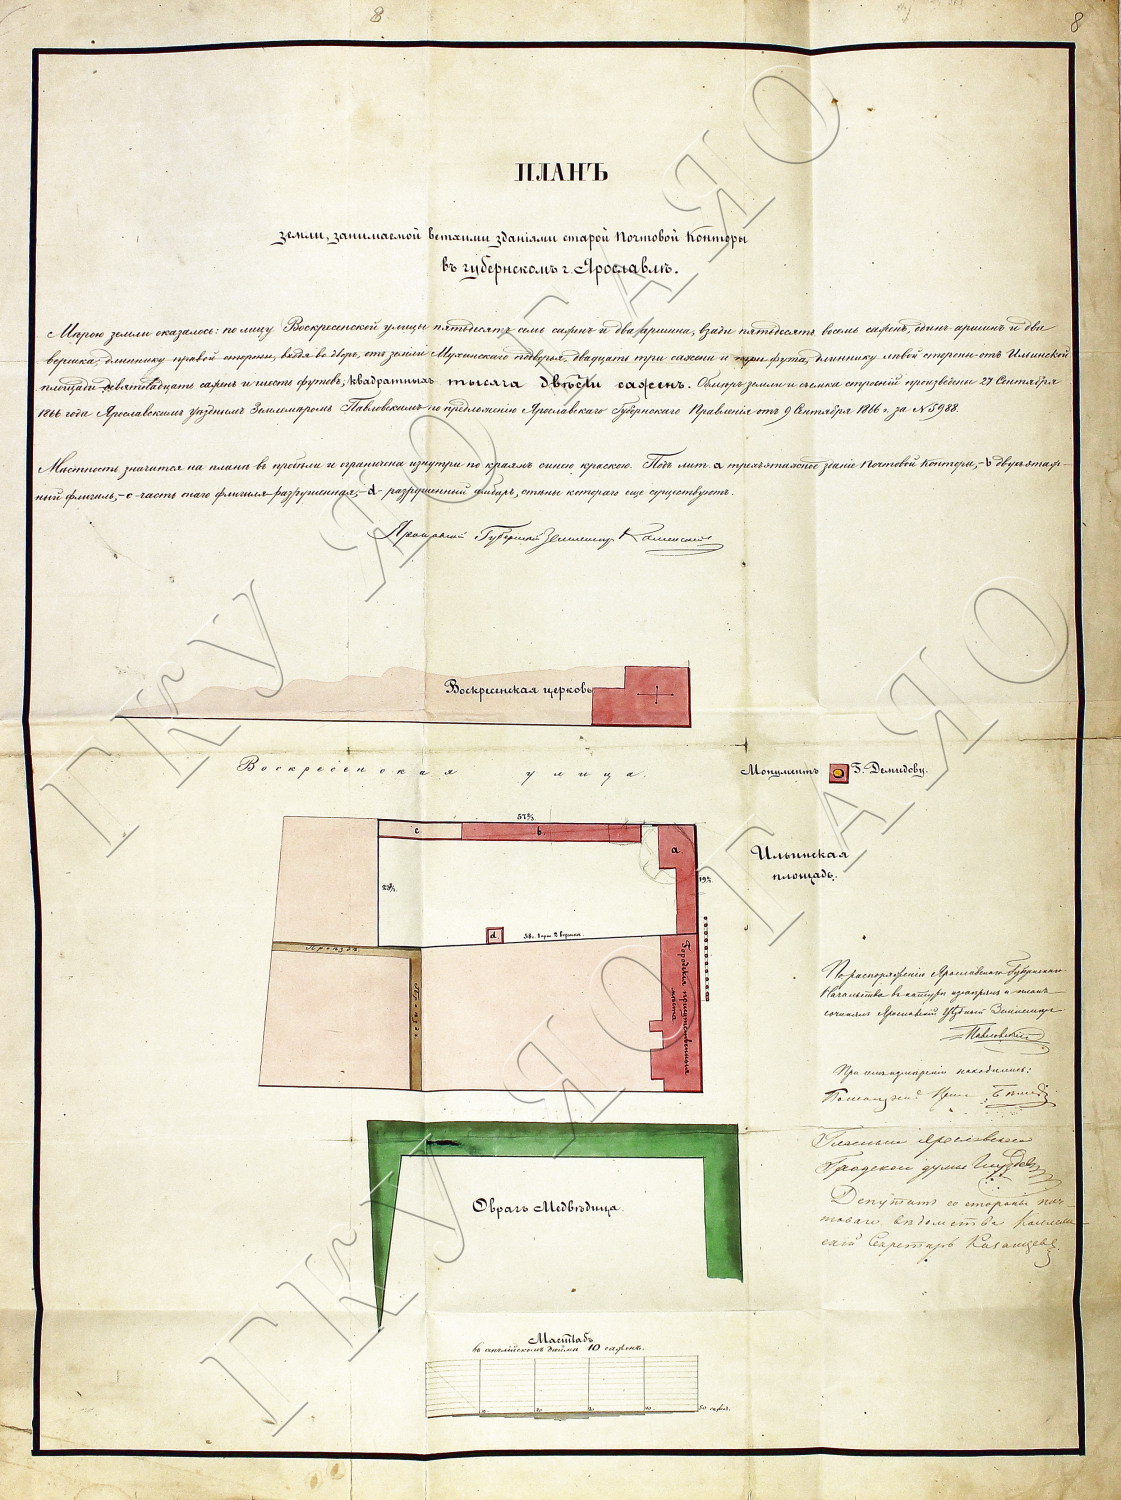 8
8
ПЛАНЪ
земли, занимаемой ветхими зданіями старой Почтовой Конторы
въ губернскомъ г. Ярославлѣ.
Мѣрою земли оказалось: по лицу Воскресенской улицы пятьдесятъ семь саженъ и два аршина, взади пятдесятъ восемь саженъ, одинъ аршинъ и два
вершка, длиннику правой стороны, входя во дворъ, отъ земли Мухинскаго подворья, двадцать три сажени и фута, длиннику лѣвой стороны отъ Ильинской
площади девятнадцать саженъ и шесть футовъ, квадратныхъ тысяча двѣсти саженъ. Обмѣръ земли и съемка строеній произведены 27 Сентября
1866 года Ярославскимъ уѣзднымъ Землемѣромъ Павловскимъ по предложенію Ярославскаго Губернскаго Правленія отъ 9 Сентября 1866 г. за № 5988.
Мѣстность значится на планѣ въ пробѣли и ограничена изнутри по краямъ синею краскою. Подъ лит. а трехъэтажное зданіе Почтовой Конторы, – b двухъэтаж-
ный флигель, – c часть онаго флигеля разрушенная, – d разрушенный амбаръ, стѣны котораго еще существуютъ.
Губернскій Землемѣръ
Воскресенская церковь
Воскресенская улица.
Монументъ Г. Демидову.
57⅔
c. b. a
Ильинская
площадь.
d. 58 с. 1 арш 2 вершка.
Проѣздъ.
Проѣздъ
Городскія присутственныя
мѣста
По распоряженію Ярославскаго Губернскаго
Начальства въ натурѣ измѣрялъ и планъ
сочинялъ Ярославскій Уѣздный Землемѣръ
Павловскій
При семъ измѣреніи находились:
Гласный Ярославской
Городской думы
Депутатъ со стороны поч-
товаго вѣдомства Коллеж-
скій Секретарь
Оврагъ Медвѣдица.
Масштабъ
въ англійскомъ дюймѣ 10 саженъ.
10 20 30 40 50 сажен.
ГКУ ЯО ГАЯО
ГКУ ЯО ГАЯО